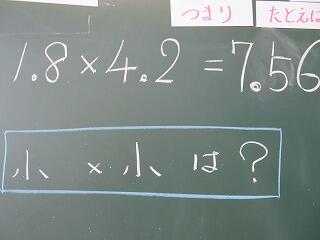 つまり たとえば
1.8×4.2=7.56
小×小は?